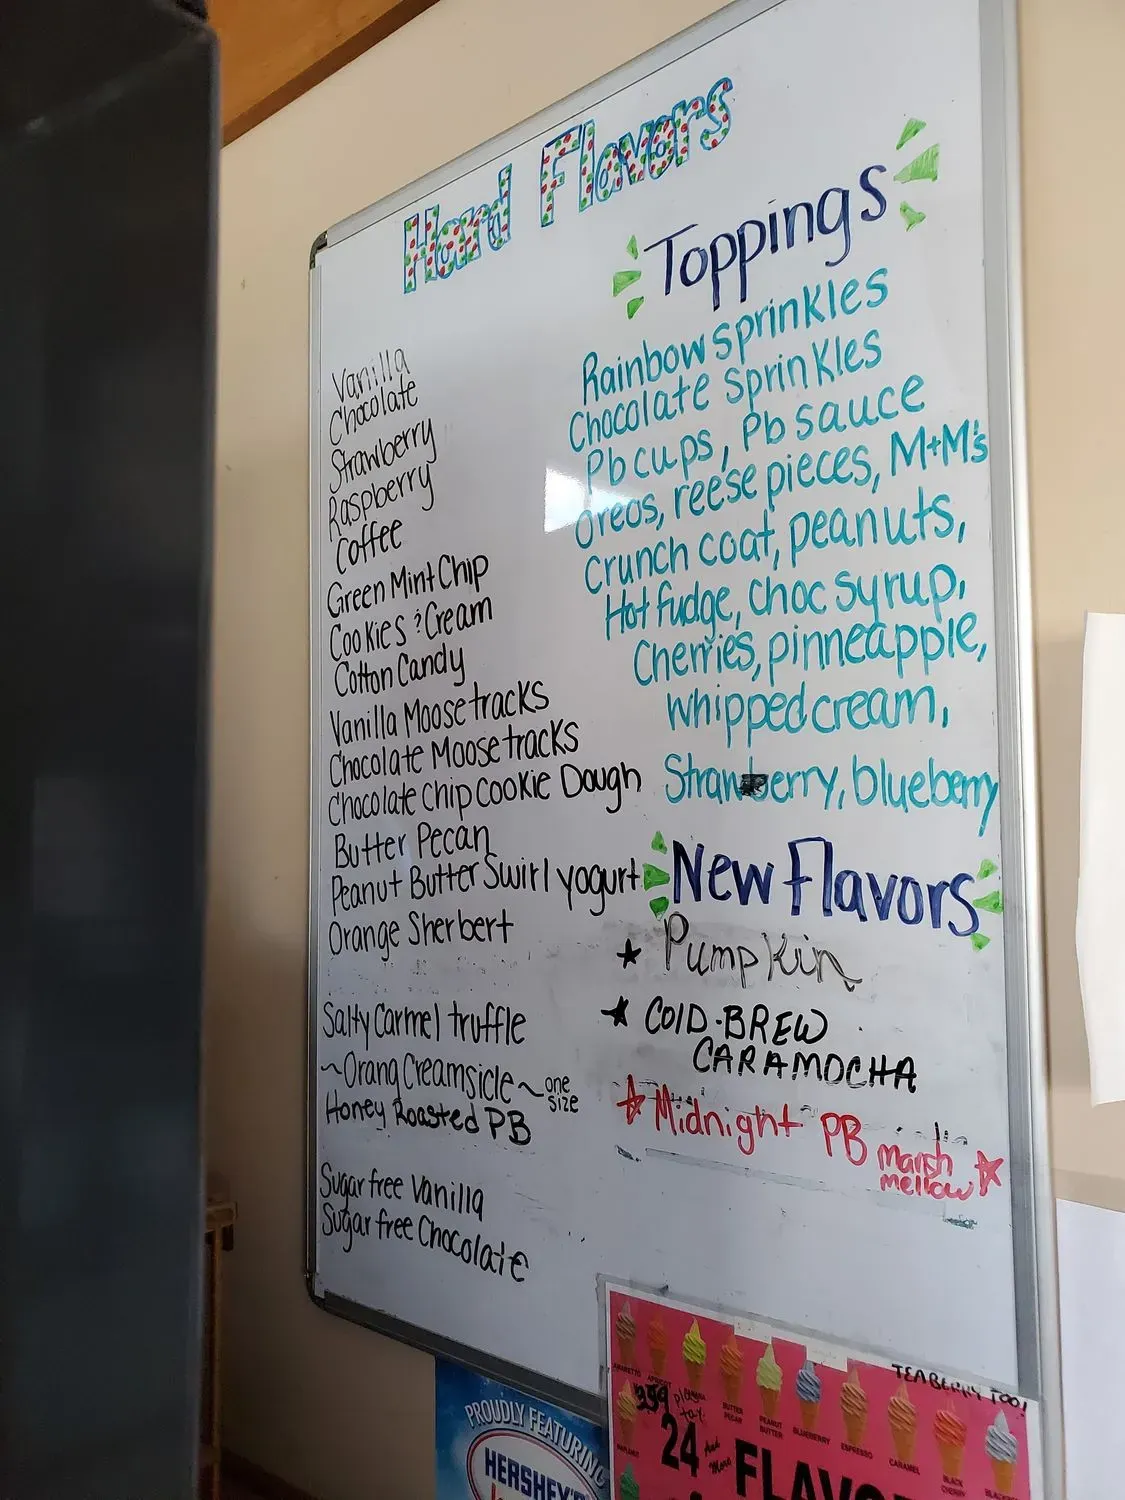 Hard Flavors
Vanilla
Chocolate
Strawberry
Raspberry
Coffee
Green Mint Chip
Cookies & Cream
Cotton Candy
Vanilla Moosetracks
Chocolate Moosetracks
Chocolate Chip Cookie Dough
Butter Pecan
Peanut Butter Swirl yogurt
Orange Sherbert
Salty Carmel truffle
~Orang Creamsicle~ one size
Honey Roasted PB
Sugar free Vanilla
Sugar free Chocolate
Toppings
Rainbow sprinkles
Chocolate sprinkles
Pb cups, Pb sauce
Oreos, reese pieces, M+M's
Crunch coat, peanuts,
Hot fudge, choc syrup,
Cherries, pinneapple,
whipped cream,
Strawberry, blueberry
New Flavors
★ Pumpkin
★ COLD-BREW
CARAMOCHA
☆ Midnight PB marsh
mellow ☆
PROUDLY FEATURING
HERSHEY'S
TEABERRY TOO!
AMARETTO
APRICOT
BANANA
BUTTER PECAN
PEANUT BUTTER
BLUEBERRY
ESPRESSO
CARAMEL
BLACK CHERRY
3.59 plus tax.
24 and more
FLAVO